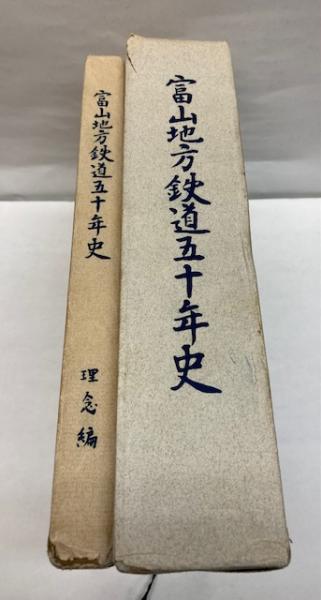 富山地方鉄道五十年史
富山地方鉄道五十年史
理念編